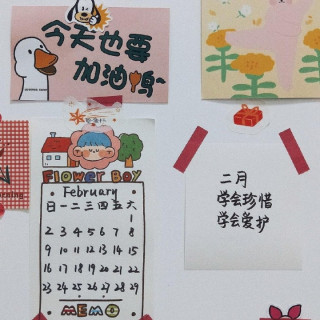 今天也要
加油鸭
FLOWER BOY
February
日一二三四五六
1
2 3 4 5 6 7 8
9 10 11 12 13 14 15
16 17 18 19 20 21 22
23 24 25 26 27 28 29
MEMO
二月
学会珍惜
学会爱护